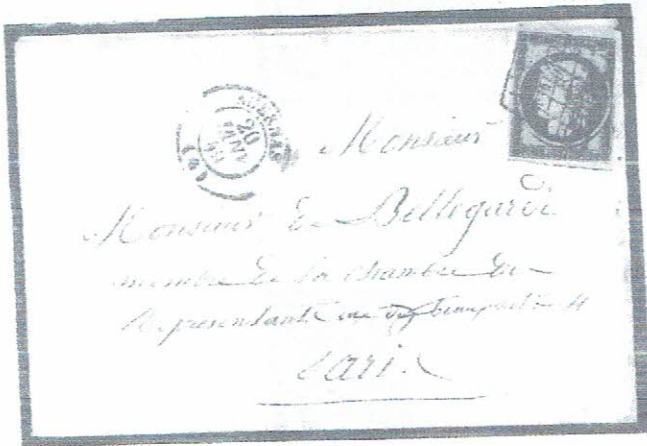 EPERNAY
20
JANV
Monsieur
Monsieur de Bellegarde
membre de la chambre des
Représentants rue
Paris